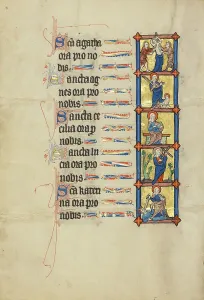 Sca agatha
ora pro no
bis.
Sancta ag
nes ora pro
nobis
Sancta ce
cilia ora p
nobis.
Sancta lu
cia ora pro
nobis.
Sca kateri
na ora pro
nobis